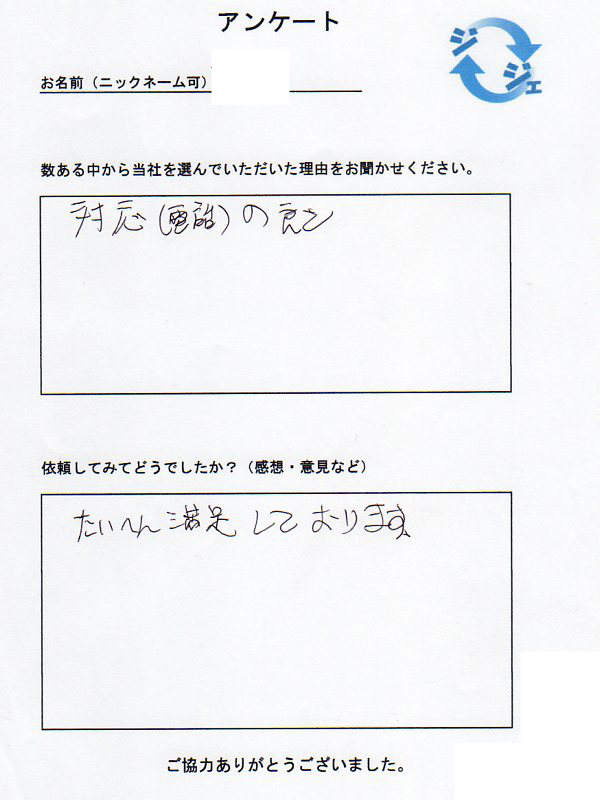 アンケート
ジジェ
お名前（ニックネーム可）
数ある中から当社を選んでいただいた理由をお聞かせください。
対応（電話）の良さ
依頼してみてどうでしたか？（感想・意見など）
たいへん満足しております
ご協力ありがとうございました。